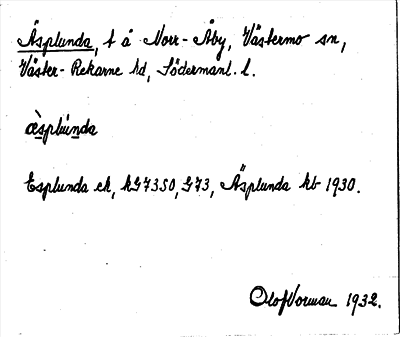 Äsplunda, t å Norr-Åby, Västermo sn,
Väster-Rekarne hd, Södermanl. l.
æ̀splúnda
Esplunda ek, kG7350, G73, Äsplunda kb 1930.
Olof Vorman 1932.